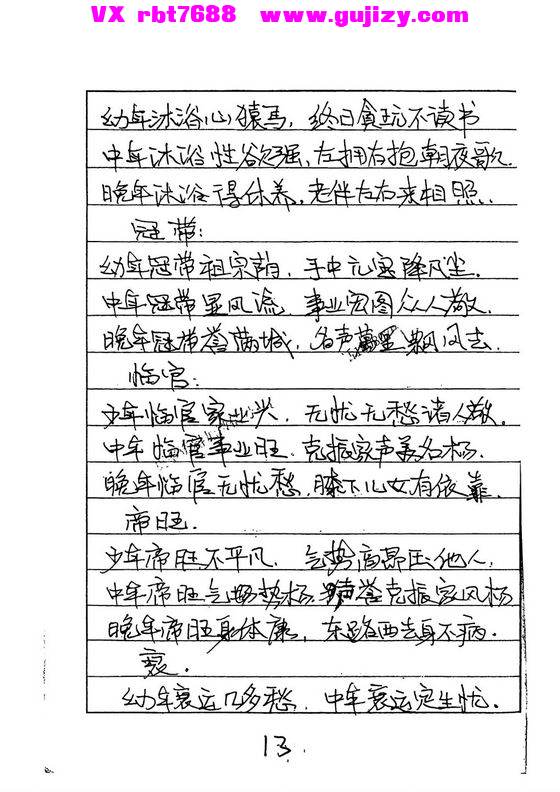 VX rbt7688 www.gujizy.com
幼年沐浴心猿马，终日贪玩不读书
中年沐浴性欲强，左拥右抱朝夜歌.
晚年沐浴得休养，老伴左右来相照.
冠带：
幼年冠带祖宗荫，手中元宝降凡尘.
中年冠带显风流，事业宏图众人敬.
晚年冠带誉满城，名声万里飘风去.
临官：
少年临官家业兴，无忧无愁诸人敬.
中年临官事业旺.克振家声美名杨.
晚年临官无忧愁，膝下儿女有依靠.
帝旺.
少年帝旺不平凡，气势高昂压他人，
中年帝旺气势杨，声誉克振家风杨
晚年帝旺身体康，东跑西去身不病.
衰.
幼年衰运几多愁，中年衰运定生忧.
13.